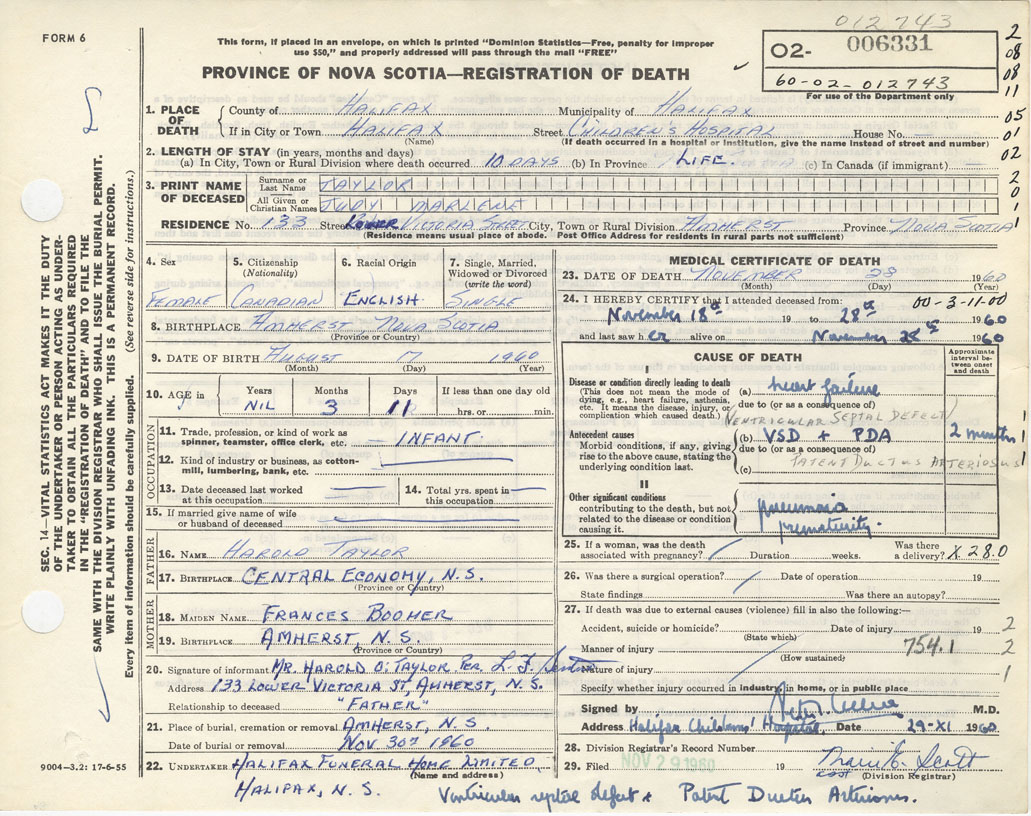 012743
FORM 6
This form, if placed in an envelope, on which is printed "Dominion Statistics—Free, penalty for improper
use $50," and properly addressed will pass through the mail "FREE"
PROVINCE OF NOVA SCOTIA—REGISTRATION OF DEATH
02- 006331
60-02-012743
For use of the Department only
2
08
08
11
05
01
02
2
0
1
1
1. PLACE OF DEATH
County of HALIFAX Municipality of HALIFAX
If in City or Town HALIFAX Street CHILDREN'S HOSPITAL House No.
(Name) (If death occurred in a hospital or institution, give the name instead of street and number)
2. LENGTH OF STAY (in years, months and days)
(a) In City, Town or Rural Division where death occurred 10 DAYS (b) In Province LIFE. (c) In Canada (if immigrant)
3. PRINT NAME OF DECEASED
Surname or Last Name TAYLOR
All Given or Christian Names JUDY MARLENE
RESIDENCE No. 133 Street LOWER VICTORIA STREET City, Town or Rural Division AMHERST Province NOVA SCOTIA
(Residence means usual place of abode. Post Office Address for residents in rural parts not sufficient)
SEC. 14—VITAL STATISTICS ACT MAKES IT THE DUTY
OF THE UNDERTAKER OR PERSON ACTING AS UNDER-
TAKER TO OBTAIN ALL THE PARTICULARS REQUIRED
IN THE "REGISTRATION OF DEATH" AND TO FILE THE
SAME WITH THE DIVISION REGISTRAR WHO SHALL ISSUE THE BURIAL PERMIT.
WRITE PLAINLY WITH UNFADING INK. THIS IS A PERMANENT RECORD.
Every item of information should be carefully supplied. (See reverse side for instructions.)
4. Sex FEMALE
5. Citizenship (Nationality) CANADIAN
6. Racial Origin ENGLISH
7. Single, Married, Widowed or Divorced (write the word) SINGLE
8. BIRTHPLACE AMHERST, NOVA SCOTIA
(Province or Country)
9. DATE OF BIRTH AUGUST 17 1960
(Month) (Day) (Year)
10. AGE in Years Months Days If less than one day old
NIL 3 11 hrs. or min.
OCCUPATION
11. Trade, profession, or kind of work as spinner, teamster, office clerk, etc. — INFANT —
12. Kind of industry or business, as cotton-mill, lumbering, bank, etc.
13. Date deceased last worked at this occupation
14. Total yrs. spent in this occupation
15. If married give name of wife or husband of deceased
FATHER
16. NAME HAROLD TAYLOR
17. BIRTHPLACE CENTRAL ECONOMY, N.S.
(Province or Country)
MOTHER
18. MAIDEN NAME FRANCES BOOMER
19. BIRTHPLACE AMHERST, N.S.
(Province or Country)
20. Signature of informant MR. HAROLD O. TAYLOR PER. L. F.
Address 133 LOWER VICTORIA ST, AMHERST, N.S.
Relationship to deceased "FATHER"
21. Place of burial, cremation or removal AMHERST, N.S.
Date of burial or removal NOV. 30th 1960
22. UNDERTAKER HALIFAX FUNERAL HOME LIMITED
(Name and address)
HALIFAX, N.S.
9004—3.2: 17-6-55
MEDICAL CERTIFICATE OF DEATH
23. DATE OF DEATH NOVEMBER 28 1960
(Month) (Day) (Year)
24. I HEREBY CERTIFY that I attended deceased from: 00-3-11-00
November 18th 19 to 28th 1960
and last saw her alive on November 28th 1960
CAUSE OF DEATH
Approximate interval between onset and death
I
Disease or condition directly leading to death
(This does not mean the mode of dying, e.g., heart failure, asthenia, etc. It means the disease, injury, or complication which caused death.)
(a) heart failure
due to (or as a consequence of)
VENTRICULAR SEPTAL DEFECT
Antecedent causes
Morbid conditions, if any, giving rise to the above cause, stating the underlying condition last.
(b) VSD + PDA 2 minutes
due to (or as a consequence of)
(c) PATENT DUCTUS ARTERIOSUS
II
Other significant conditions
contributing to the death, but not related to the disease or condition causing it.
pneumonia
prematurity.
1
1
1
25. If a woman, was the death associated with pregnancy? Duration weeks. Was there a delivery? X 28.0
26. Was there a surgical operation? Date of operation 19
State findings Was there an autopsy?
27. If death was due to external causes (violence) fill in also the following:—
Accident, suicide or homicide? Date of injury 19 2
(State which)
Manner of injury 754.1 2
(How sustained)
Nature of injury 1
Specify whether injury occurred in industry, in home, or in public place
Signed by M.D.
Address Halifax Childrens' Hospital, Date 29-XI 1960
28. Division Registrar's Record Number
29. Filed NOV 29 1960 19 Scott
(Division Registrar)
Ventricular septal defect + Patent Ductus Arteriosus.